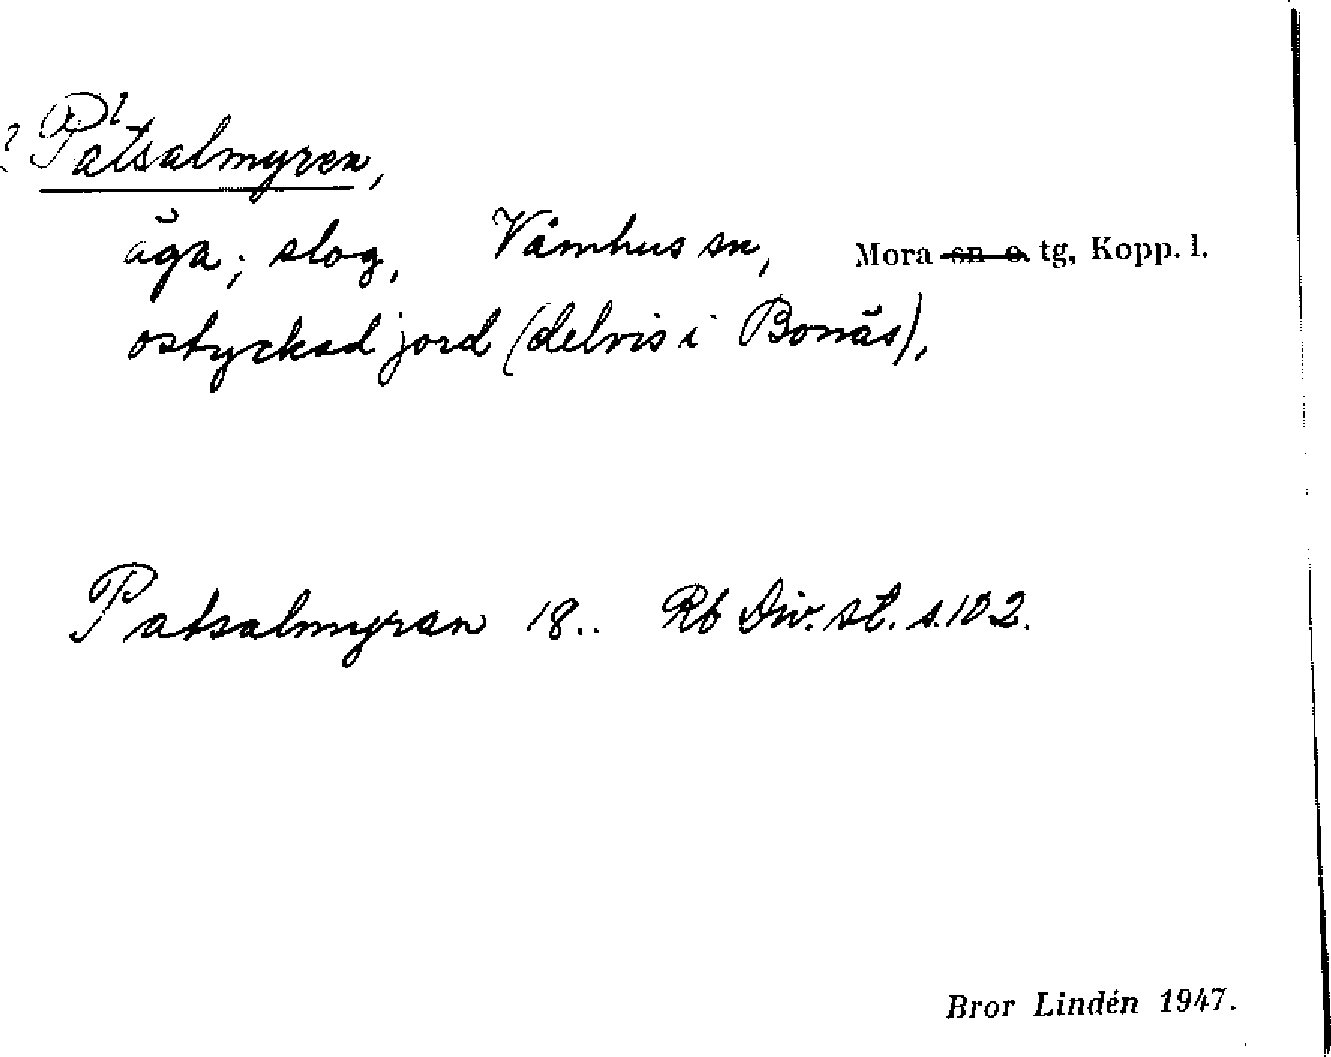 ? Patsalmyren,
äga; slog, Våmhus sn, Mora sn o. tg, Kopp. l.
ostyckad jord (delvis i Bonäs),
Patsalmyran 18.. Rb Div. st. s. 102.
Bror Lindén 1947.